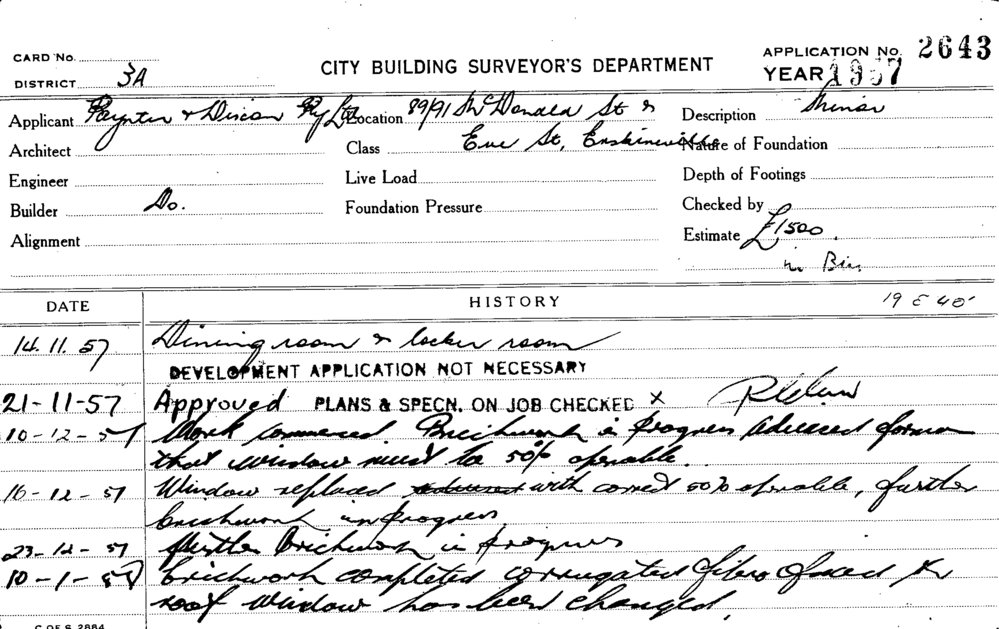 CARD No.
DISTRICT 3A
CITY BUILDING SURVEYOR'S DEPARTMENT
APPLICATION No. 2643
YEAR 1957
Applicant Paynter & Dixon Pty Ltd
Location 89/91 McDonald St &
Description Minor
Architect
Class Eve St, Erskineville
Nature of Foundation
Engineer
Live Load
Depth of Footings
Builder Do.
Foundation Pressure
Checked by
Alignment
Estimate £1,500.
in
DATE
HISTORY
14.11.57 Dining room & locker room
DEVELOPMENT APPLICATION NOT NECESSARY
21-11-57 Approved PLANS & SPECN. ON JOB CHECKED X
10-12-57 Work commenced. Brickwork in progress Advised foreman
that window must be 50% openable.
16-12-57 Window replaced with correct 50% openable, further
brickwork in progress
23-12-57 Further brickwork in progress
10-1-58 brickwork completed corrugated fibro fixed to
roof window has been changed.
C OF S 2884